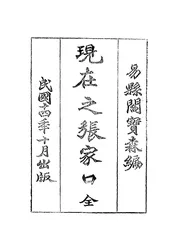 易縣閻寶森編
現在之張家口 全
民國十四年十月出版